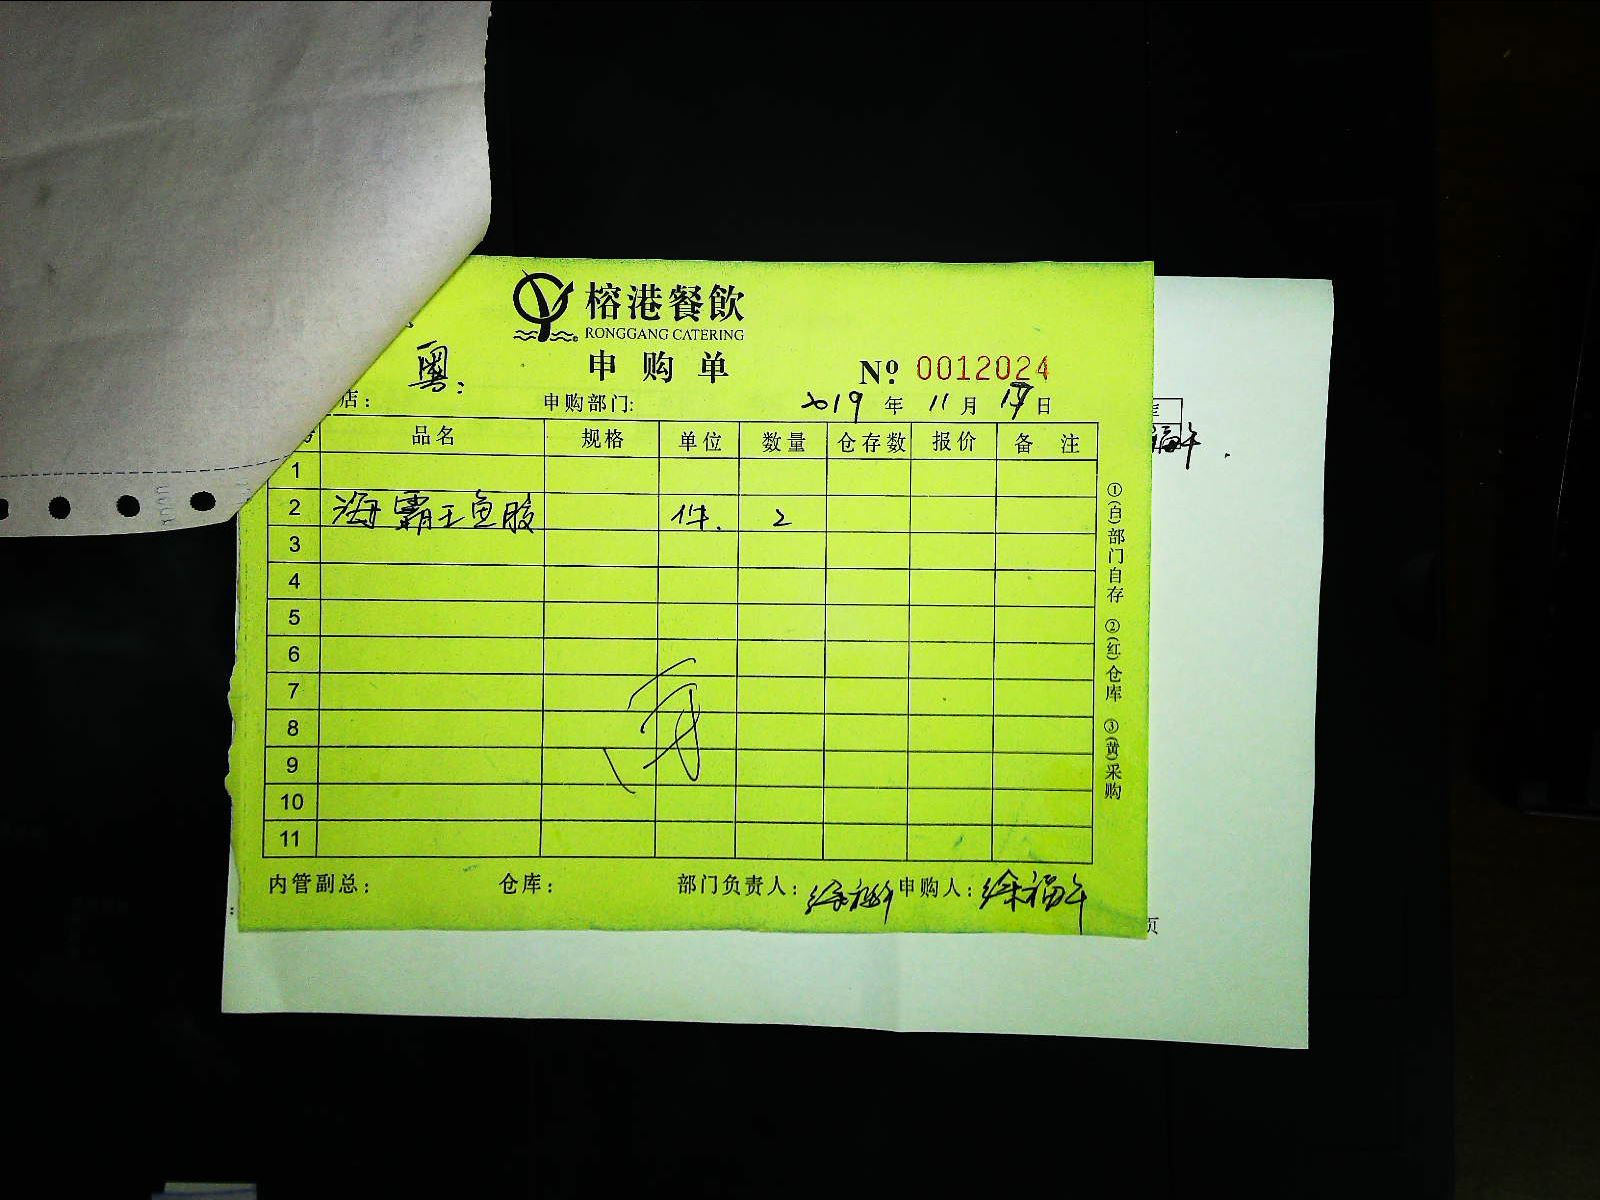 榕港餐飲
RONGGANG CATERING
申购单
№ 0012024
粤:
店: 申购部门: 2019年11月19日
品名 规格 单位 数量 仓存数 报价 备注
1
2 海霸王鱼胶 件. 2
3
4
5
6
7
8
9
10
11
内管副总: 仓库: 部门负责人: 徐福午 申购人: 徐福午
①(白)部门自存 ②(红)仓库 ③(黄)采购
福午.
页